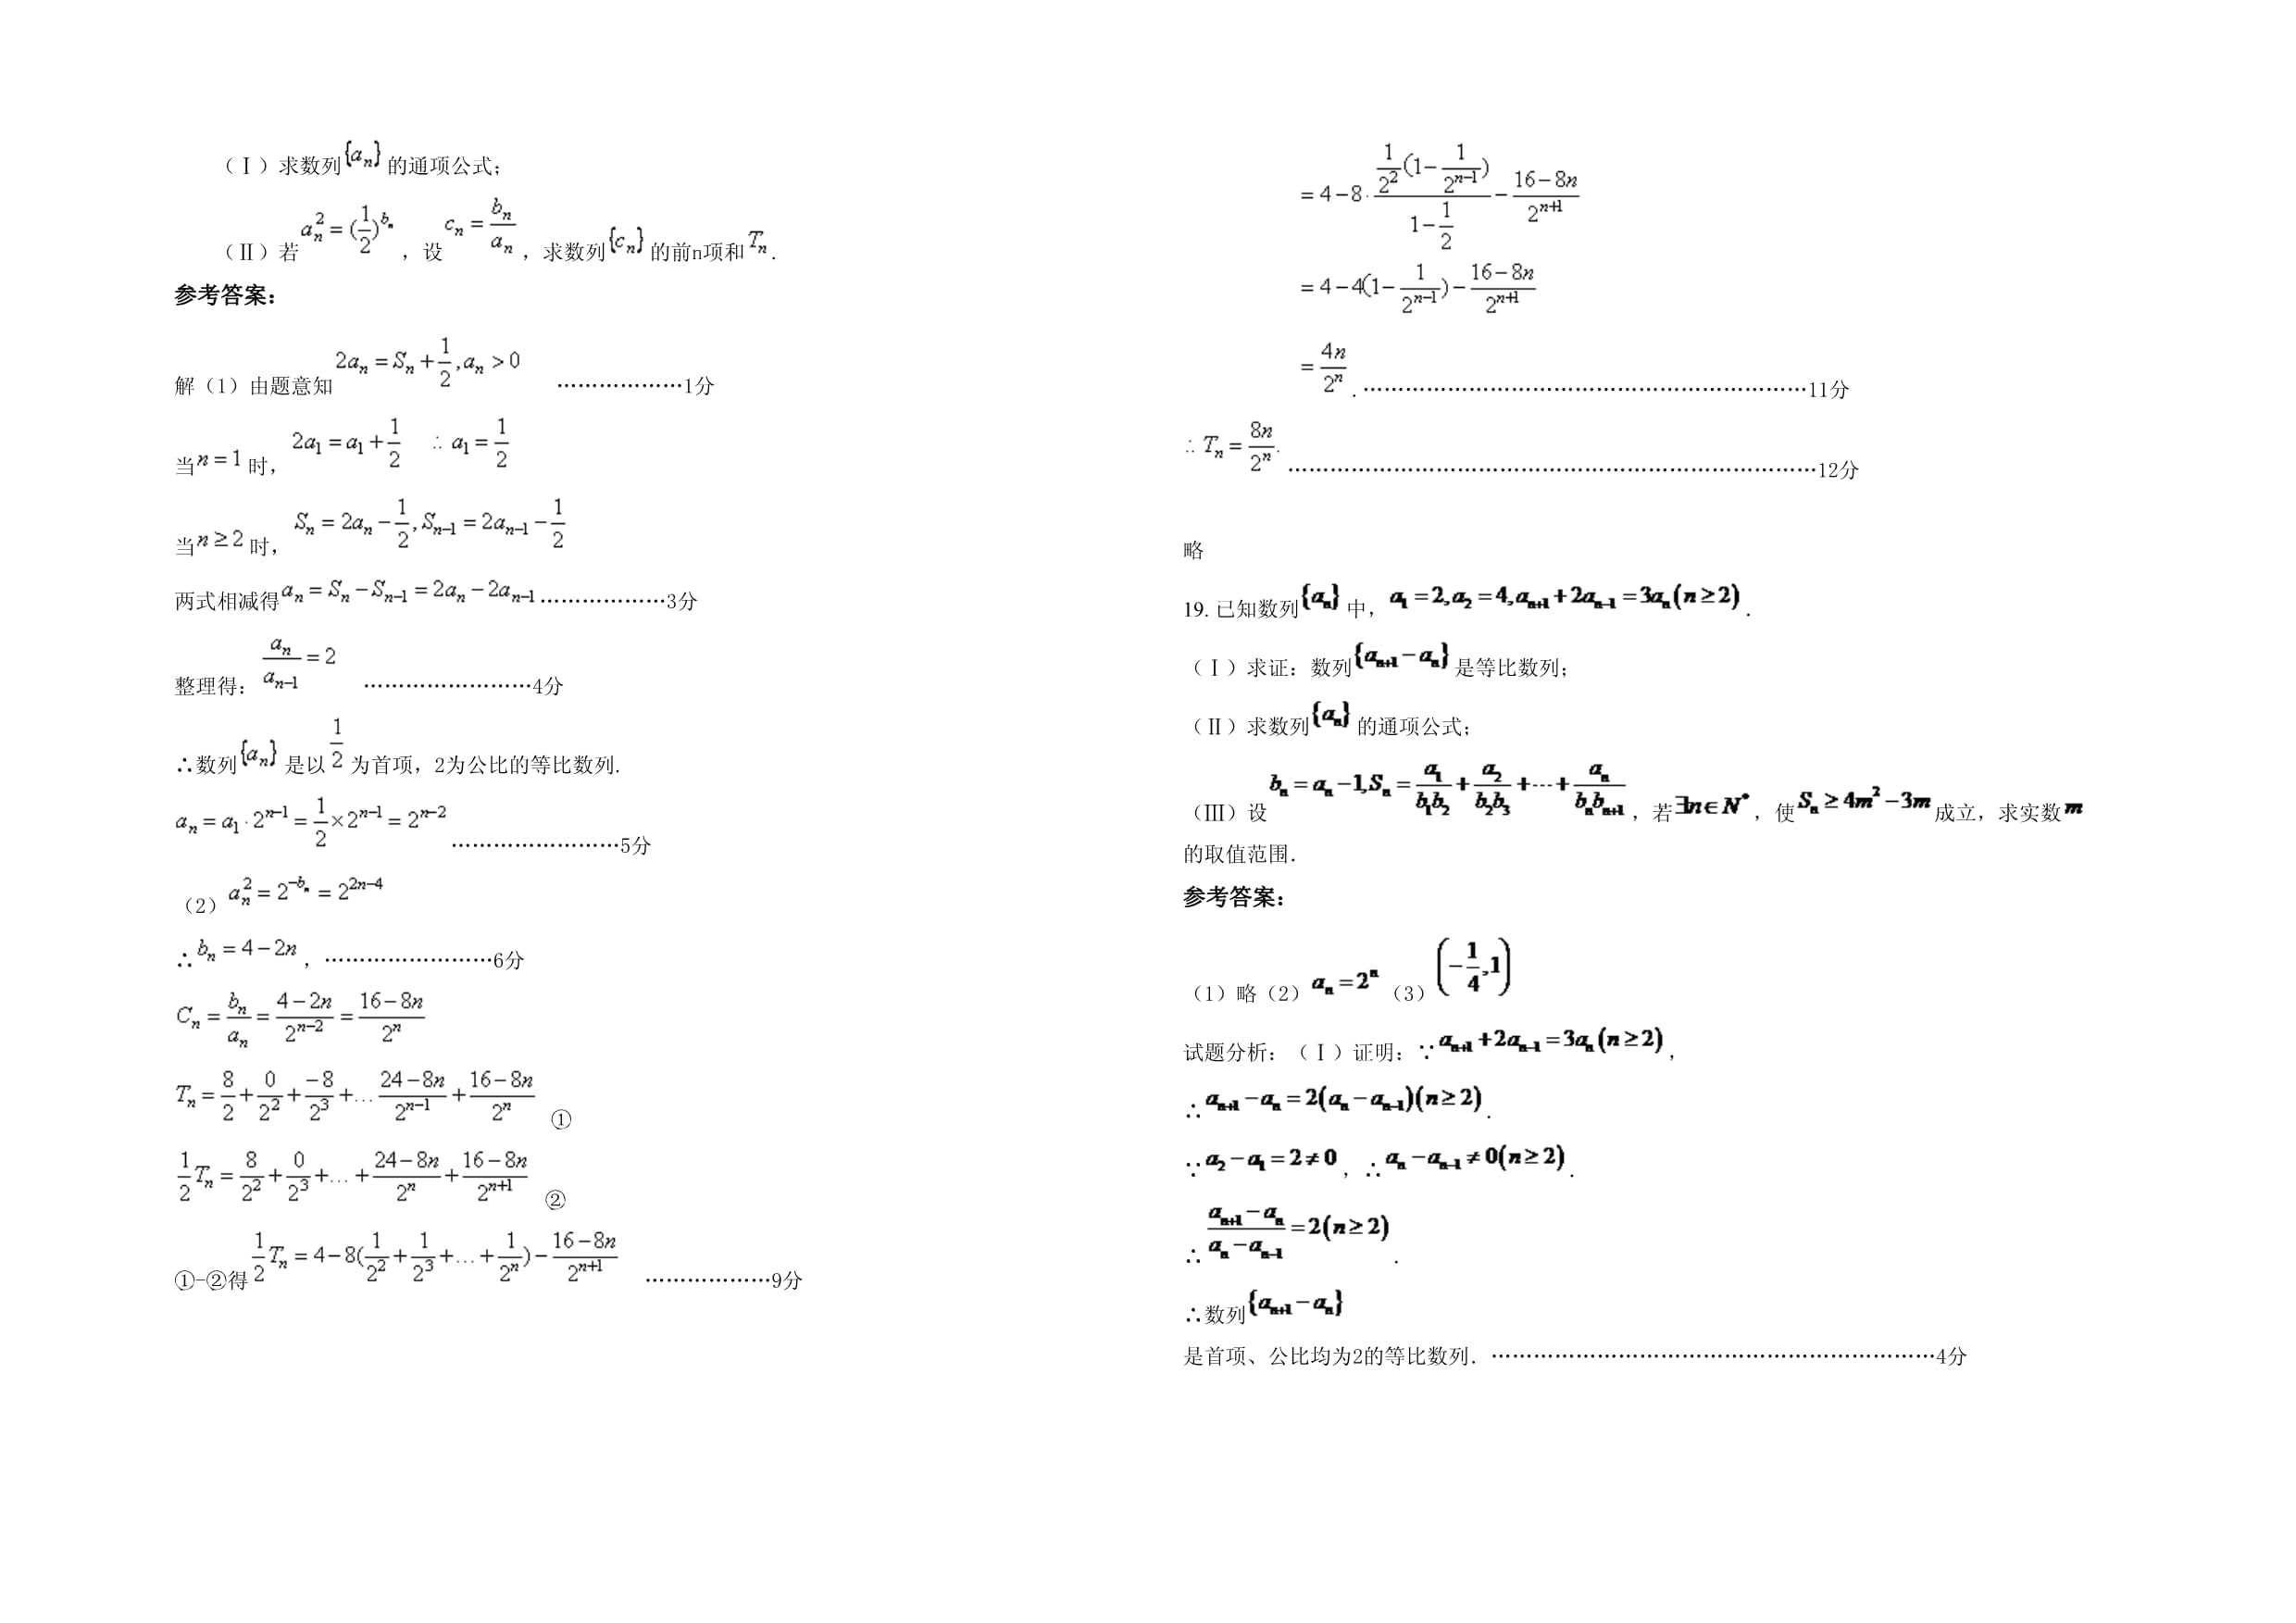 （Ⅰ）求数列{aₙ}的通项公式；
（Ⅱ）若 $a_n^2=(\frac{1}{2})^{b_n}$ ，设 $c_n=\frac{b_n}{a_n}$ ，求数列{cₙ}的前n项和Tₙ.
参考答案：
解（1）由题意知 $2a_n=S_n+\frac{1}{2},a_n>0$ ………………1分
当 $n=1$ 时， $2a_1=a_1+\frac{1}{2}$ ∴ $a_1=\frac{1}{2}$
当 $n\geq 2$ 时， $S_n=2a_n-\frac{1}{2},S_{n-1}=2a_{n-1}-\frac{1}{2}$
两式相减得 $a_n=S_n-S_{n-1}=2a_n-2a_{n-1}$ ………………3分
整理得： $\frac{a_n}{a_{n-1}}=2$ ……………………4分
∴数列{aₙ}是以 $\frac{1}{2}$ 为首项，2为公比的等比数列.
$a_n=a_1\cdot 2^{n-1}=\frac{1}{2}\times 2^{n-1}=2^{n-2}$ ……………………5分
（2） $a_n^2=2^{-b_n}=2^{2n-4}$
∴ $b_n=4-2n$ ，……………………6分
$C_n=\frac{b_n}{a_n}=\frac{4-2n}{2^{n-2}}=\frac{16-8n}{2^n}$
$T_n=\frac{8}{2}+\frac{0}{2^2}+\frac{-8}{2^3}+\ldots\frac{24-8n}{2^{n-1}}+\frac{16-8n}{2^n}$ ①
$\frac{1}{2}T_n=\frac{8}{2^2}+\frac{0}{2^3}+\ldots+\frac{24-8n}{2^n}+\frac{16-8n}{2^{n+1}}$ ②
①-②得 $\frac{1}{2}T_n=4-8(\frac{1}{2^2}+\frac{1}{2^3}+\ldots+\frac{1}{2^n})-\frac{16-8n}{2^{n+1}}$ ………………9分
$=4-8\cdot\frac{\frac{1}{2^2}(1-\frac{1}{2^{n-1}})}{1-\frac{1}{2}}-\frac{16-8n}{2^{n+1}}$
$=4-4(1-\frac{1}{2^{n-1}})-\frac{16-8n}{2^{n+1}}$
$=\frac{4n}{2^n}$ .………………………………………………………11分
∴ $T_n=\frac{8n}{2^n}.$ …………………………………………………………………12分
略
19. 已知数列{aₙ}中， $a_1=2,a_2=4,a_{n+1}+2a_{n-1}=3a_n(n\geq 2)$ .
（Ⅰ）求证：数列 $\{a_{n+1}-a_n\}$ 是等比数列；
（Ⅱ）求数列{aₙ}的通项公式；
（Ⅲ）设 $b_n=a_n-1,S_n=\frac{a_1}{b_1b_2}+\frac{a_2}{b_2b_3}+\cdots+\frac{a_n}{b_nb_{n+1}}$ ，若 $\exists n\in N^*$ ，使 $S_n\geq 4m^2-3m$ 成立，求实数 $m$
的取值范围．
参考答案：
（1）略（2） $a_n=2^n$ （3） $\left(-\frac{1}{4},1\right)$
试题分析：（Ⅰ）证明：∵ $a_{n+1}+2a_{n-1}=3a_n(n\geq 2)$ ，
∴ $a_{n+1}-a_n=2(a_n-a_{n-1})(n\geq 2)$ .
∵ $a_2-a_1=2\neq 0$ ，∴ $a_n-a_{n-1}\neq 0(n\geq 2)$ .
∴ $\frac{a_{n+1}-a_n}{a_n-a_{n-1}}=2(n\geq 2)$ .
∴数列 $\{a_{n+1}-a_n\}$
是首项、公比均为2的等比数列．………………………………………………………4分